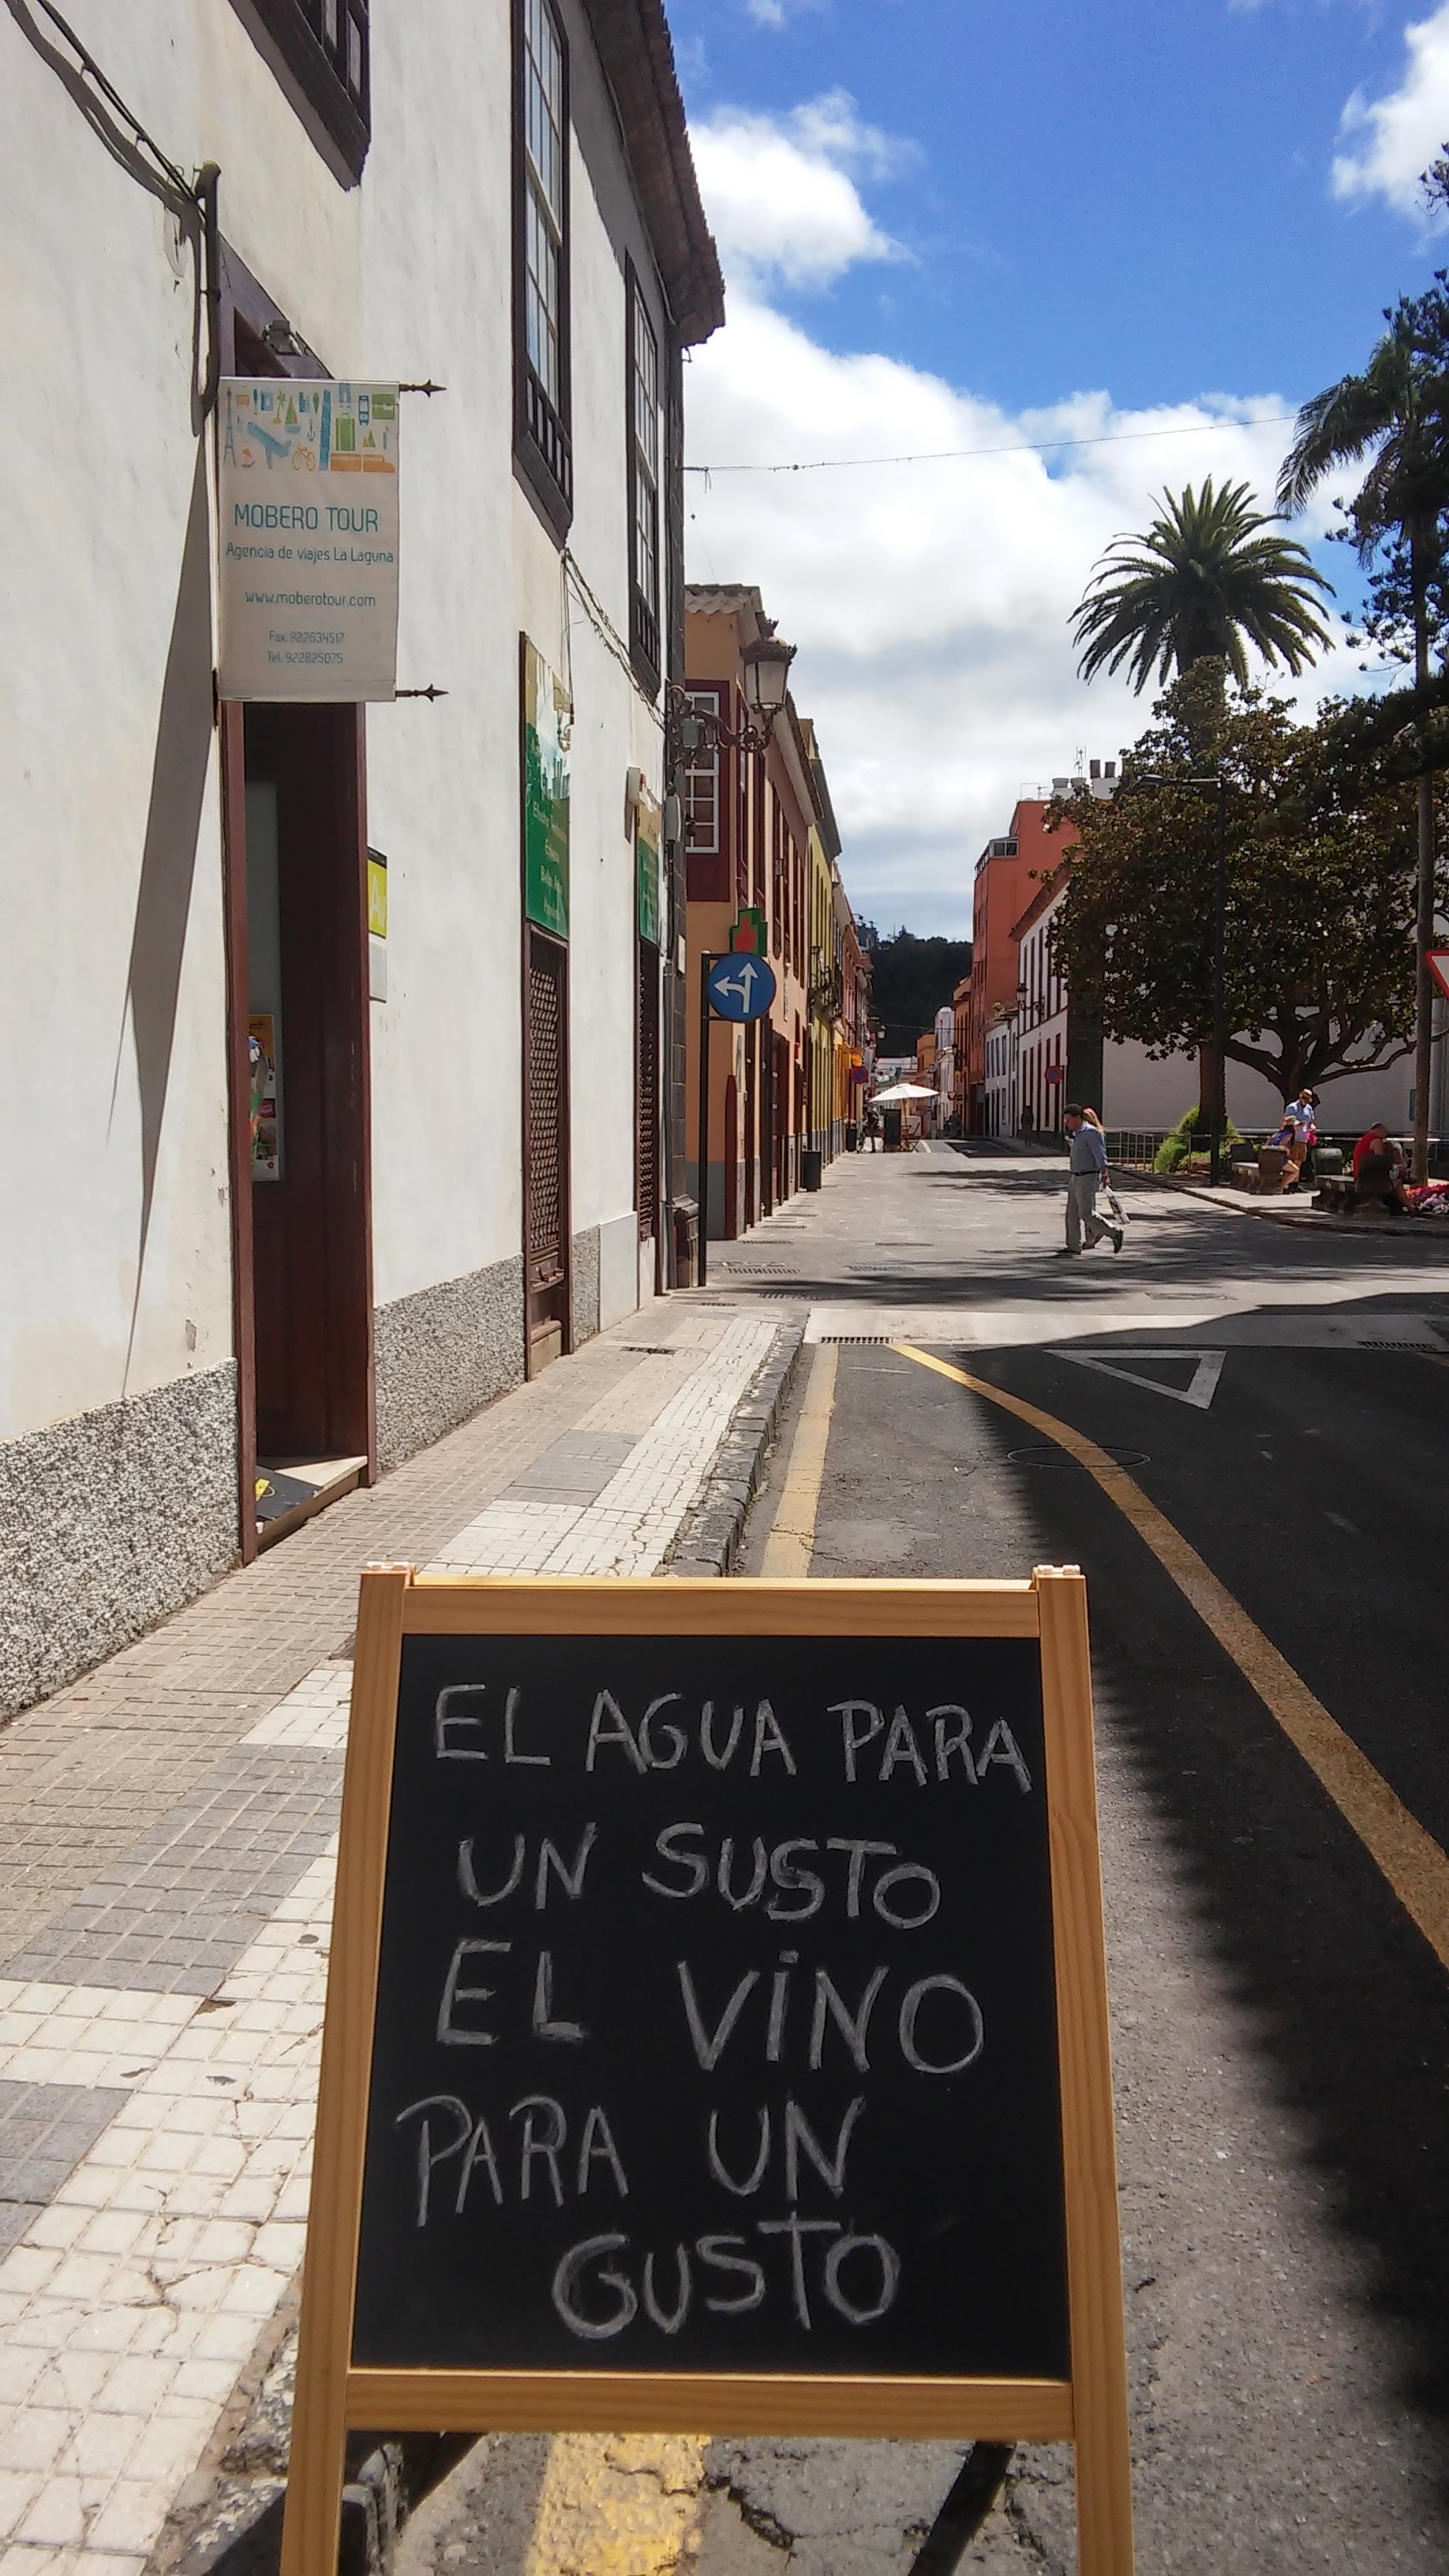 MOBERO TOUR
Agencia de viajes La Laguna
www.moberotour.com
Fax. 922634517
Tel. 922825075
EL AGUA PARA
UN SUSTO
EL VINO
PARA UN
GUSTO